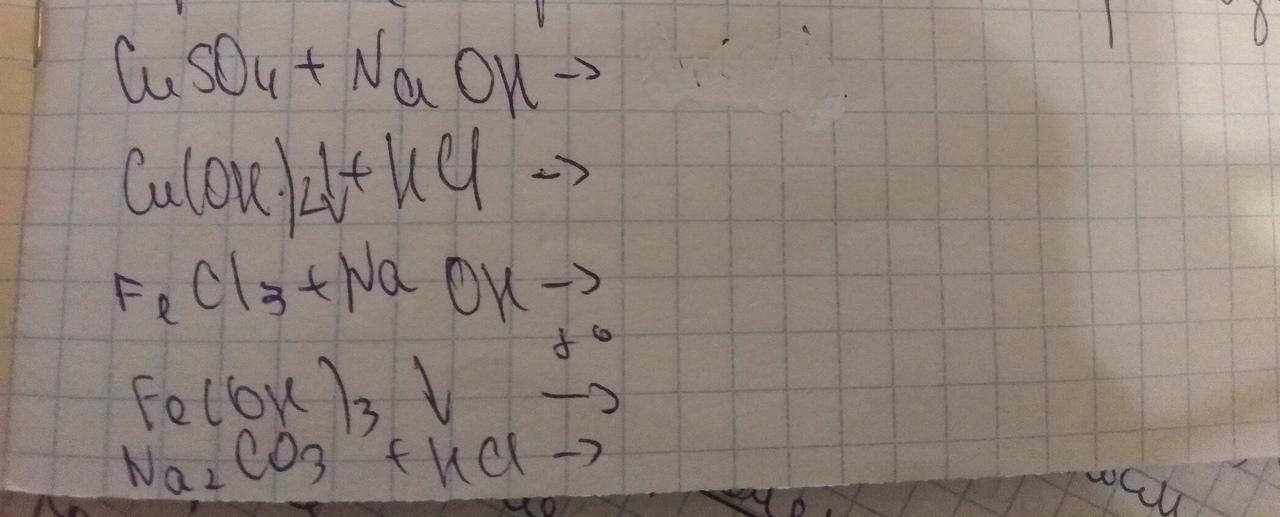 CuSO4 + NaOH →
Cu(OH)2↓ + HCl →
FeCl3 + NaOH →
t°
Fe(OH)3 ↓ →
Na2CO3 + HCl →